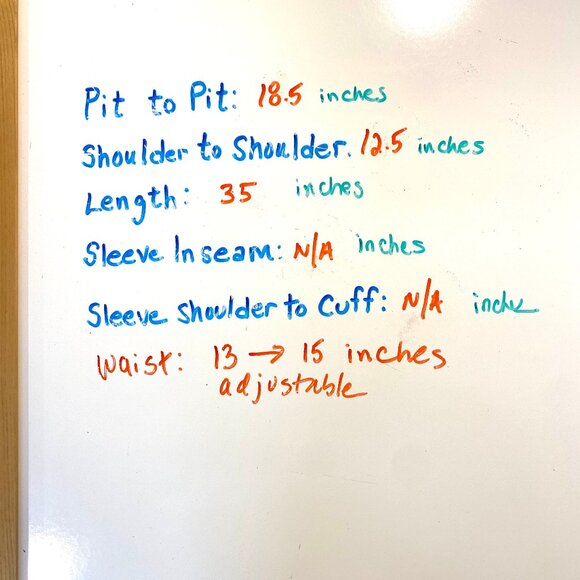 Pit to Pit: 18.5 inches
Shoulder to Shoulder. 12.5 inches
Length: 35 inches
Sleeve Inseam: N/A inches
Sleeve Shoulder to Cuff: N/A inches
Waist: 13 → 15 inches
adjustable